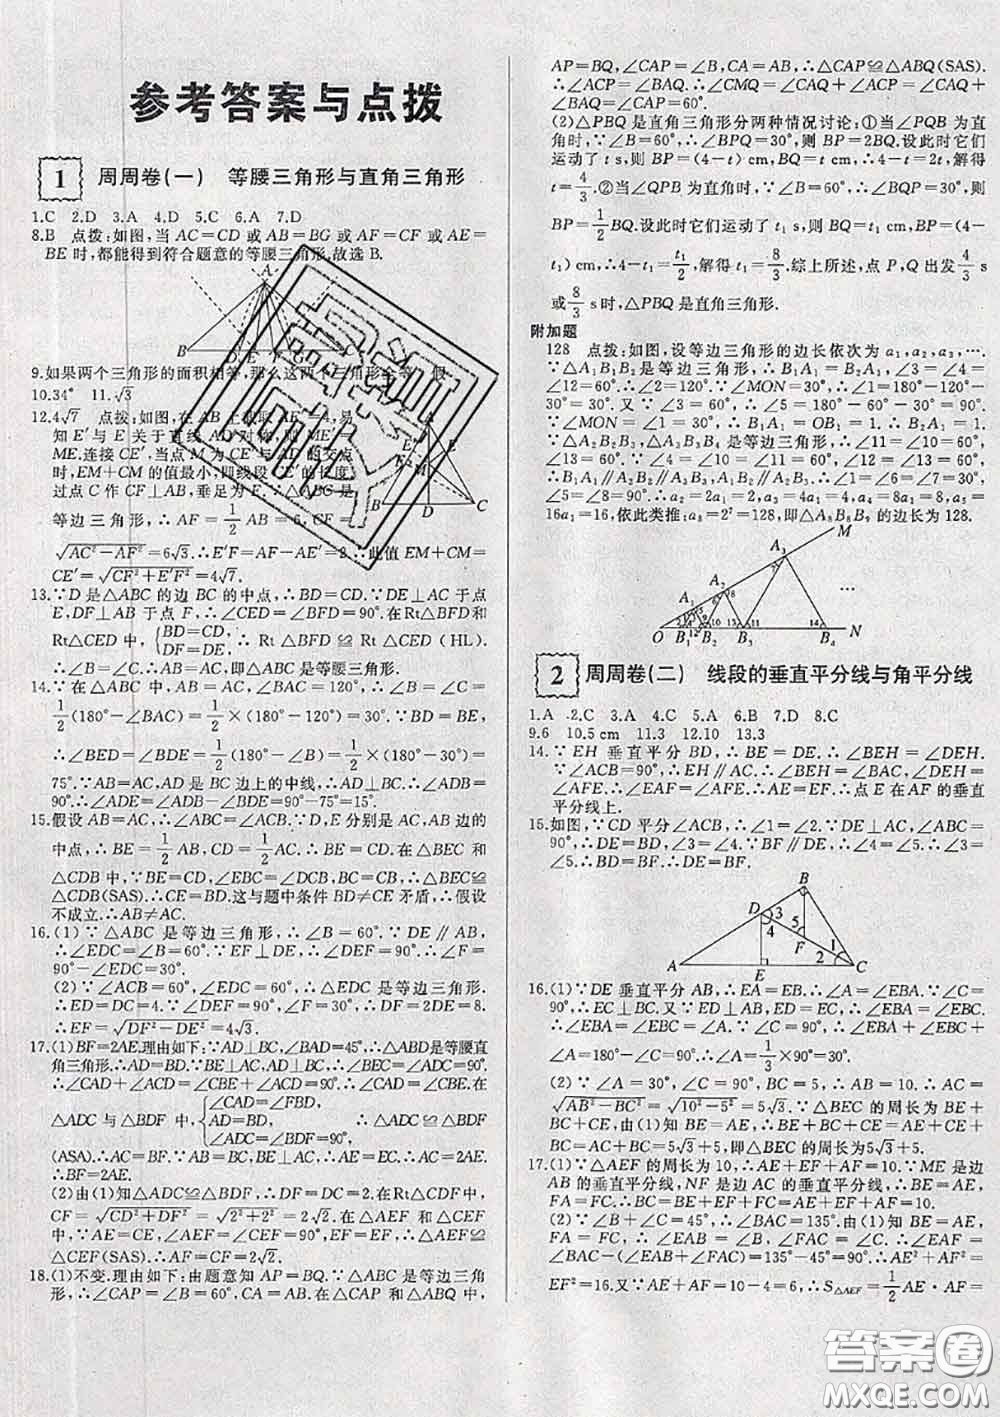 参考答案与点拨
1 周周卷(一) 等腰三角形与直角三角形
1.C 2.D 3.A 4.D 5.C 6.A 7.D
8.B 点拨:如图,当 AC=CD 或 AB=BG 或 AF=CF 或 AE=
BE 时,都能得到符合题意的等腰三角形,故选 B.
A
B D E C
9.如果两个三角形的面积相等,那么这两个三角形全等 假
10.34° 11.√3
12.4√7 点拨:如图,在 AB 上截取 AE′=4,易
知 E′与 E 关于直线 AD 对称,则 ME′=
ME.连接 CE′,当点 M 为 CE′与 AD 的交点
时,EM+CM 的值最小,即线段 CE′的长度.
过点 C 作 CF⊥AB,垂足为 F.∵△ABC 是
等边三角形,∴AF=1/2 AB=6,CF=
√(AC²-AF²)=6√3.∴E′F=AF-AE′=2.∴此值 EM+CM=
CE′=√(CF²+E′F²)=4√7.
13.∵D 是△ABC 的边 BC 的中点,∴BD=CD.∵DE⊥AC 于点
E,DF⊥AB 于点 F,∴∠CED=∠BFD=90°.在Rt△BFD 和
Rt△CED 中,{BD=CD, DF=DE. ∴Rt△BFD≌Rt△CED (HL).
∴∠B=∠C.∴AB=AC,即△ABC 是等腰三角形.
14.∵在△ABC 中,AB=AC,∠BAC=120°,∴∠B=∠C=
1/2(180°-∠BAC)=1/2×(180°-120°)=30°.∵BD=BE,
∴∠BED=∠BDE=1/2(180°-∠B)=1/2(180°-30°)=
75°.∵AB=AC,AD 是 BC 边上的中线,∴AD⊥BC.∴∠ADB=
90°.∴∠ADE=∠ADB-∠BDE=90°-75°=15°.
15.假设 AB=AC,∴∠ABC=∠ACB.∵D,E 分别是 AC,AB 边的
中点,∴BE=1/2 AB,CD=1/2 AC.∴BE=CD.在△BEC 和
△CDB 中,∵BE=CD,∠EBC=∠DCB,BC=CB,∴△BEC≌
△CDB(SAS).∴CE=BD.这与题中条件 BD≠CE 矛盾,∴假设
不成立.∴AB≠AC.
16.(1)∵△ABC 是等边三角形,∴∠B=60°.∵DE∥AB,
∴∠EDC=∠B=60°.∵EF⊥DE,∴∠DEF=90°.∴∠F=
90°-∠EDC=30°.
(2)∵∠ACB=60°,∠EDC=60°,∴△EDC 是等边三角形.
∴ED=DC=4.∵∠DEF=90°,∠F=30°,∴DF=2DE=8.
∴EF=√(DF²-DE²)=4√3.
17.(1)BF=2AE.理由如下:∵AD⊥BC,∠BAD=45°,∴△ABD是等腰直
角三角形,∴AD=BD.∵BE⊥AC,AD⊥BC,∴∠BEC=∠ADC=90°.
∴∠CAD+∠ACD=∠CBE+∠ACD=90°.∴∠CAD=∠CBE.在
△ADC 与△BDF 中,{∠CAD=∠FBD, AD=BD, ∠ADC=∠BDF=90°, ∴△ADC≌△BDF
(ASA).∴AC=BF.∵AB=BC,BE⊥AC,∴AE=EC.∴AC=2AE.
∴BF=2AE.
(2)由(1)知△ADC≌△BDF,∴DF=DC=2.在Rt△CDF 中,
CF=√(CD²+DF²)=√(2²+2²)=2√2.在△AEF 和△CEF 中,
∵AE=CE,∠AEF=∠CEF=90°,EF=EF,∴△AEF≌
△CEF(SAS).∴AF=CF=2√2.
18.(1)不变.理由如下:由题意知 AP=BQ.∵△ABC 是等边三角
形,∴∠CAP=∠B=60°,CA=AB.在△CAP 和△ABQ 中,
AP=BQ,∠CAP=∠B,CA=AB,∴△CAP≌△ABQ(SAS).
∴∠ACP=∠BAQ.∴∠CMQ=∠CAQ+∠ACP=∠CAQ+
∠BAQ=∠CAP=60°.
(2)△PBQ 是直角三角形分两种情况讨论:①当∠PQB 为直
角时,∵∠B=60°,∴∠BPQ=30°,则 BP=2BQ.设此时它们
运动了 t s,则 BP=(4-t) cm,BQ=t cm,∴4-t=2t,解得
t=4/3.②当∠QPB 为直角时,∵∠B=60°,∴∠BQP=30°,则
BP=1/2 BQ.设此时它们运动了 t₁ s,则 BQ=t₁ cm,BP=(4-
t₁) cm,∴4-t₁=t₁/2,解得 t₁=8/3.综上所述,点 P,Q 出发 4/3 s
或 8/3 s时,△PBQ是直角三角形.
附加题
128 点拨:如图,设等边三角形的边长依次为 a₁,a₂,a₃,….
∵△A₁B₁B₂ 是等边三角形,∴B₁A₁=B₂A₁,∠3=∠4=
∠12=60°.∴∠2=120°.∵∠MON=30°,∴∠1=180°-120°-
30°=30°.又∵∠3=60°,∴∠5=180°-60°-30°=90°.
∵∠MON=∠1=30°,∴B₁A₁=OB₁=1.∴B₂A₁=1.
∵△A₂B₂B₃,△A₃B₃B₄ 是等边三角形,∴∠11=∠10=60°,
∠13=60°.∵∠4=∠12=60°,∠11=∠10=60°,∠13=60°,
∴B₁A₁∥A₂B₂∥A₃B₃,B₂A₁∥B₃A₂.∴∠1=∠6=∠7=30°,
∠5=∠8=90°.∴a₂=2a₁=2,a₃=4a₁=4,a₄=8a₁=8,a₅=
16a₁=16,依此类推:a₈=2⁷=128,即△A₈B₈B₉ 的边长为 128.
M
A₃
A₂
…
O B₁ B₂ B₃ B₄ N
2 周周卷(二) 线段的垂直平分线与角平分线
1.A 2.C 3.A 4.C 5.A 6.B 7.D 8.C
9.6 10.5 cm 11.3 12.10 13.3
14.∵EH 垂直平分 BD,∴BE=DE.∴∠BEH=∠DEH.
∵∠ACB=90°,∴EH∥AC.∴∠BEH=∠BAC,∠DEH=
∠AFE.∴∠EAF=∠AFE.∴AE=EF.∴点 E 在 AF 的垂直
平分线上.
15.如图,∵CD 平分∠ACB,∴∠1=∠2.∵DE⊥AC,∠ABC=
90°,∴DE=BD,∠3=∠4.∵BF∥DE,∴∠4=∠5.∴∠3=
∠5.∴BD=BF.∴DE=BF.
B
D 3
4 5 F 1
2
A E C
16.(1)∵DE 垂直平分 AB,∴EA=EB.∴∠A=∠EBA.∵∠C=
90°,∴EC⊥BC.又∵ED⊥AB,ED=EC,∴∠EBA=∠EBC.
∠EBA=∠EBC=∠A.∵∠C=90°,∴∠A+∠EBA+∠EBC=3
∠A=180°-∠C=90°.∴∠A=1/3×90°=30°.
(2)∵∠A=30°,∠C=90°,BC=5,∴AB=10.∴AC=
√(AB²-BC²)=√(10²-5²)=5√3.∵△BEC 的周长为 BE+
BC+CE,由(1)知 BE=AE,∴BE+BC+CE=AE+CE+
BC=AC+BC=5√3+5,即△BEC 的周长为5√3+5.
17.(1)∵△AEF 的周长为 10,∴AE+EF+AF=10.∵ME 是边
AB 的垂直平分线,NF 是边AC 的垂直平分线,∴BE=AE,
FA=FC.∴BC=BE+EF+FC=AE+EF+AF=10.
(2)∵∠B+∠C=45°,∴∠BAC=135°.由(1)知 BE=AE,
FA=FC,∴∠EAB=∠B,∠FAC=∠C.∴∠EAF=∠BAC
-(∠EAB+∠FAC)=135°-45°=90°.∴AE²+AF²=
EF²=16.又∵AE+AF=10-4=6,∴S△AEF=1/2 AE·AF=
答案圈
MXQE.COM